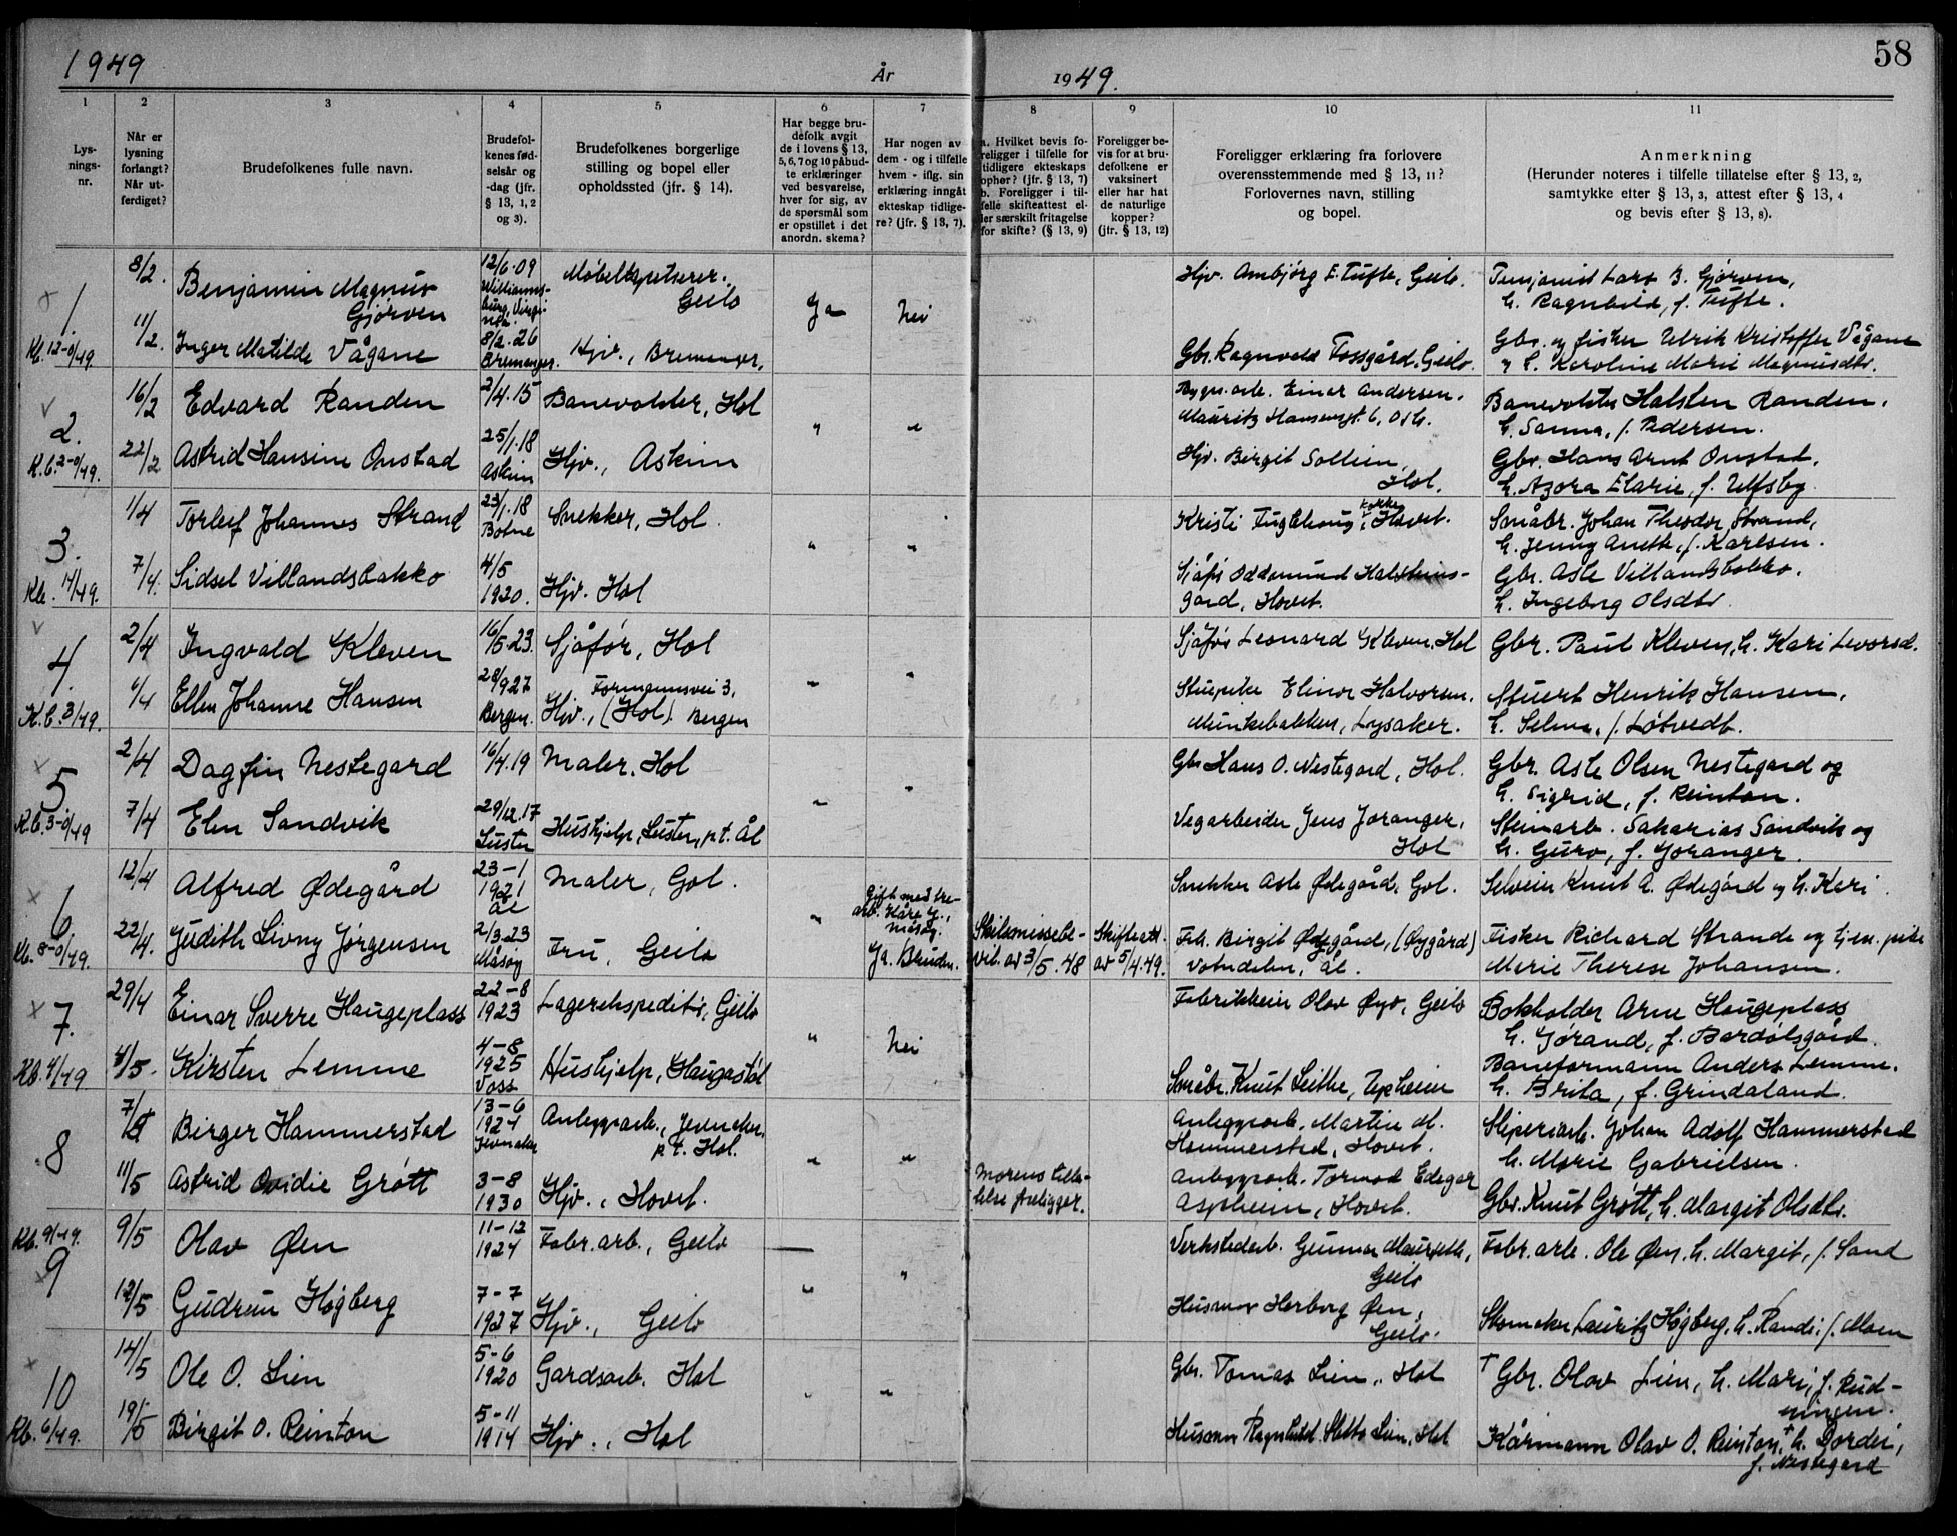 1949
År
1949.
58
1
2
3
4
5
6
7
8
9
10
11
Lysningsnr.
Når er lysning forlangt? Når utferdiget?
Brudefolkenes fulle navn.
Brudefolkenes fødselsår og -dag (jfr. § 13, 1, 2 og 3).
Brudefolkenes borgerlige stilling og bopel eller opholdssted (jfr. § 14).
Har begge brudefolk avgit de i lovens § 13, 5, 6, 7 og 10 påbudte erklæringer ved besvarelse, hver for sig, av de spørsmål som er opstillet i det anordn. skema?
Har nogen av dem - og i tilfelle hvem - iflg. sin erklæring inngått ekteskap tidligere? (jfr. § 13, 7).
a. Hvilket bevis foreligger i tilfelle for tidligere ekteskaps ophør? (jfr. § 13, 7) b. Foreligger i tilfelle skifteattest eller særskilt fritagelse for skifte? (§ 13, 9)
Foreligger bevis for at brudefolkene er vaksinert eller har hat de naturlige kopper? (jfr. § 13, 12)
Foreligger erklæring fra forlovere overensstemmende med § 13, 11? Forlovernes navn, stilling og bopel.
Anmerkning (Herunder noteres i tilfelle tillatelse efter § 13, 2, samtykke efter § 13, 3, attest efter § 13, 4 og bevis efter § 13, 8).
1
Kl. 12-0/49.
8/2. Benjamin Magnus Gjörven 12/6.09 Williamsburg, Virginia. Møbeltapetserer. Geilo Ja Nei Hjv. Ambjörg E. Tufte, Geilo. Pensjonist Lars B. Gjörven, h. Ragnhild, f. Tufte.
11/2. Inger Matilde Vågane 8/2.26 Bremanger. Hjv., Bremanger. Gbr. Ragnvald Tossgård, Geilo. Gbr. og fisker Ulrik Kristoffer Vågane og h. Karoline Marie Magnusdtr.
2.
K.b. 2-0/49.
16/2 Edvard Randen 2/4.15 Banevokter, Hol " " Bygn.arb. Einar Andersen, Mauritz Hansensgt. 6, Oslo. Banevokter Halsten Randen, h. Sanna, f. Pedersen.
22/2 Astrid Hansine Onstad 25/1.18 Askim Hjv., Askim Hjv. Birgit Sollien, Hol. Gbr. Hans Arnt Onstad, h. Azora Elarie, f. Ulfsby
3.
Kb. 14/49.
1/4 Torleif Johannes Strand 23/1.18 Botne Snekker, Hol " " Kristi Fuglehaug, kokke, Hovet. Småbr. Johan Theodor Strand, h. Jenny Aneth, f. Karlsen.
7/4. Sidsel Villandsbakko 4/5 1920. Hjv. Hol Sjåfør Oddmund Halsteinsgard, Hovet. Gbr. Asle Villandsbakko. h. Ingeborg Olsdtr.
4.
K.b. 3/49.
2/4 Ingvald Kleven 16/5.23. Sjåfør, Hol " " Sjåfør Leonard Kleven, Hol Gbr. Paul Kleven, h. Kari Levorsd.
6/4 Ellen Johanne Hansen 28/9 27 Bergen. Formannsvei 3, Hjv., (Hol) Bergen Stuepike Elinor Halvorsen, Munkebakken, Lysaker. Stuert Henrik Hansen, h. Selma, f. Løtvedt.
5
K.b. 3-0/49
2/4 Dagfin Nestegard 16/4.19 Maler. Hol " " Gbr Hans O. Nestegard, Hol. Gbr. Asle Olsen Nestegard og h. Sigrid, f. Reinton.
7/4 Elen Sandvik 29/12.17 Luster Hushjelp, Luster, p.t. Ål Vegarbeider Jens Joranger, Hol Steinarb. Sakarias Sandvik og h. Guro, f. Joranger.
6.
Kb. 8-0/49.
12/4 Alfred Ødegård 23-1 1921 Ål Maler, Gol. " Gift med trearb. Kåre J., Måsøy. Snekker Asle Ødegård, Gol. Selveier Knut A. Ødegård og h. Kari
22/4. Judith Livny Jørgensen 2/3-23 Måsøy Fru, Geilo Ja. Bruden. Skilsmissebevil. av 3/5.48 Skifteatt. av 5/4.49. Frk. Birgit Ødegård, (Øygård) Votndalen, Ål. Fisker Richard Strande og tjen.pike Marie Therese Johansen.
7.
Kb. 4/49
29/4 Einar Sverre Haugeplass 22-8 1923 Lagerekspeditør, Geilo " Nei Fabrikkeier Olav Øyo, Geilo Bokholder Arne Haugeplass h. Jørand, f. Bardølsgård.
4/5. Kirsten Lemme 4-8 1925 Voss Hushjelp, Haugastøl Småbr. Knut Leithe, Upheim Baneformann Anders Lemme. h. Brita, f. Grindaland.
8
7/5 Birger Hammerstad 13-6 1924 Jevnaker Anleggsarb., Jevnaker. p.t. Hol. " " Anleggsarb. Martin M. Hammerstad, Hovet. Sliperiarb. Johan Adolf Hammerstad h. Marie Gabrielsen.
11/5 Astrid Ovidie Grøtt 3-8 1930 Hjv., Hovet. Morens tillatelse foreligger. Anleggsarb. Tormod Edegar Aspheim, Hovet. Gbr. Knut Grøtt, h. Margit Olsdtr.
Kb. 9/49.
9
9/5 Olav Øen 11-12 1924 Fabr.arb., Geilo " " Verkstedarb. Gunnar Mauseth, Geilo Fabr.arb. Ole Øen, h. Margit, f. Sand
12/5 Gudrun Høgberg 7-7 1927 Hjv., Geilo Husmor Herborg Øen, Geilo. Skomaker Lauritz Høgberg, h. Randi, f. Moen
10
Kb. 6/49.
14/5 Ole O. Lien 5-6 1920 Gardsarb. Hol " " Gbr. Tomas Lien, Hol † Gbr. Olav Lien, h. Mari, f. Rudningen.
19/5 Birgit O. Reinton 5-11 1914 Hjv., Hol Husmor Ragnhild Sletto Lien, Hol Kårmann Olav O. Reinton, † h. Dordei, f. Nestegard